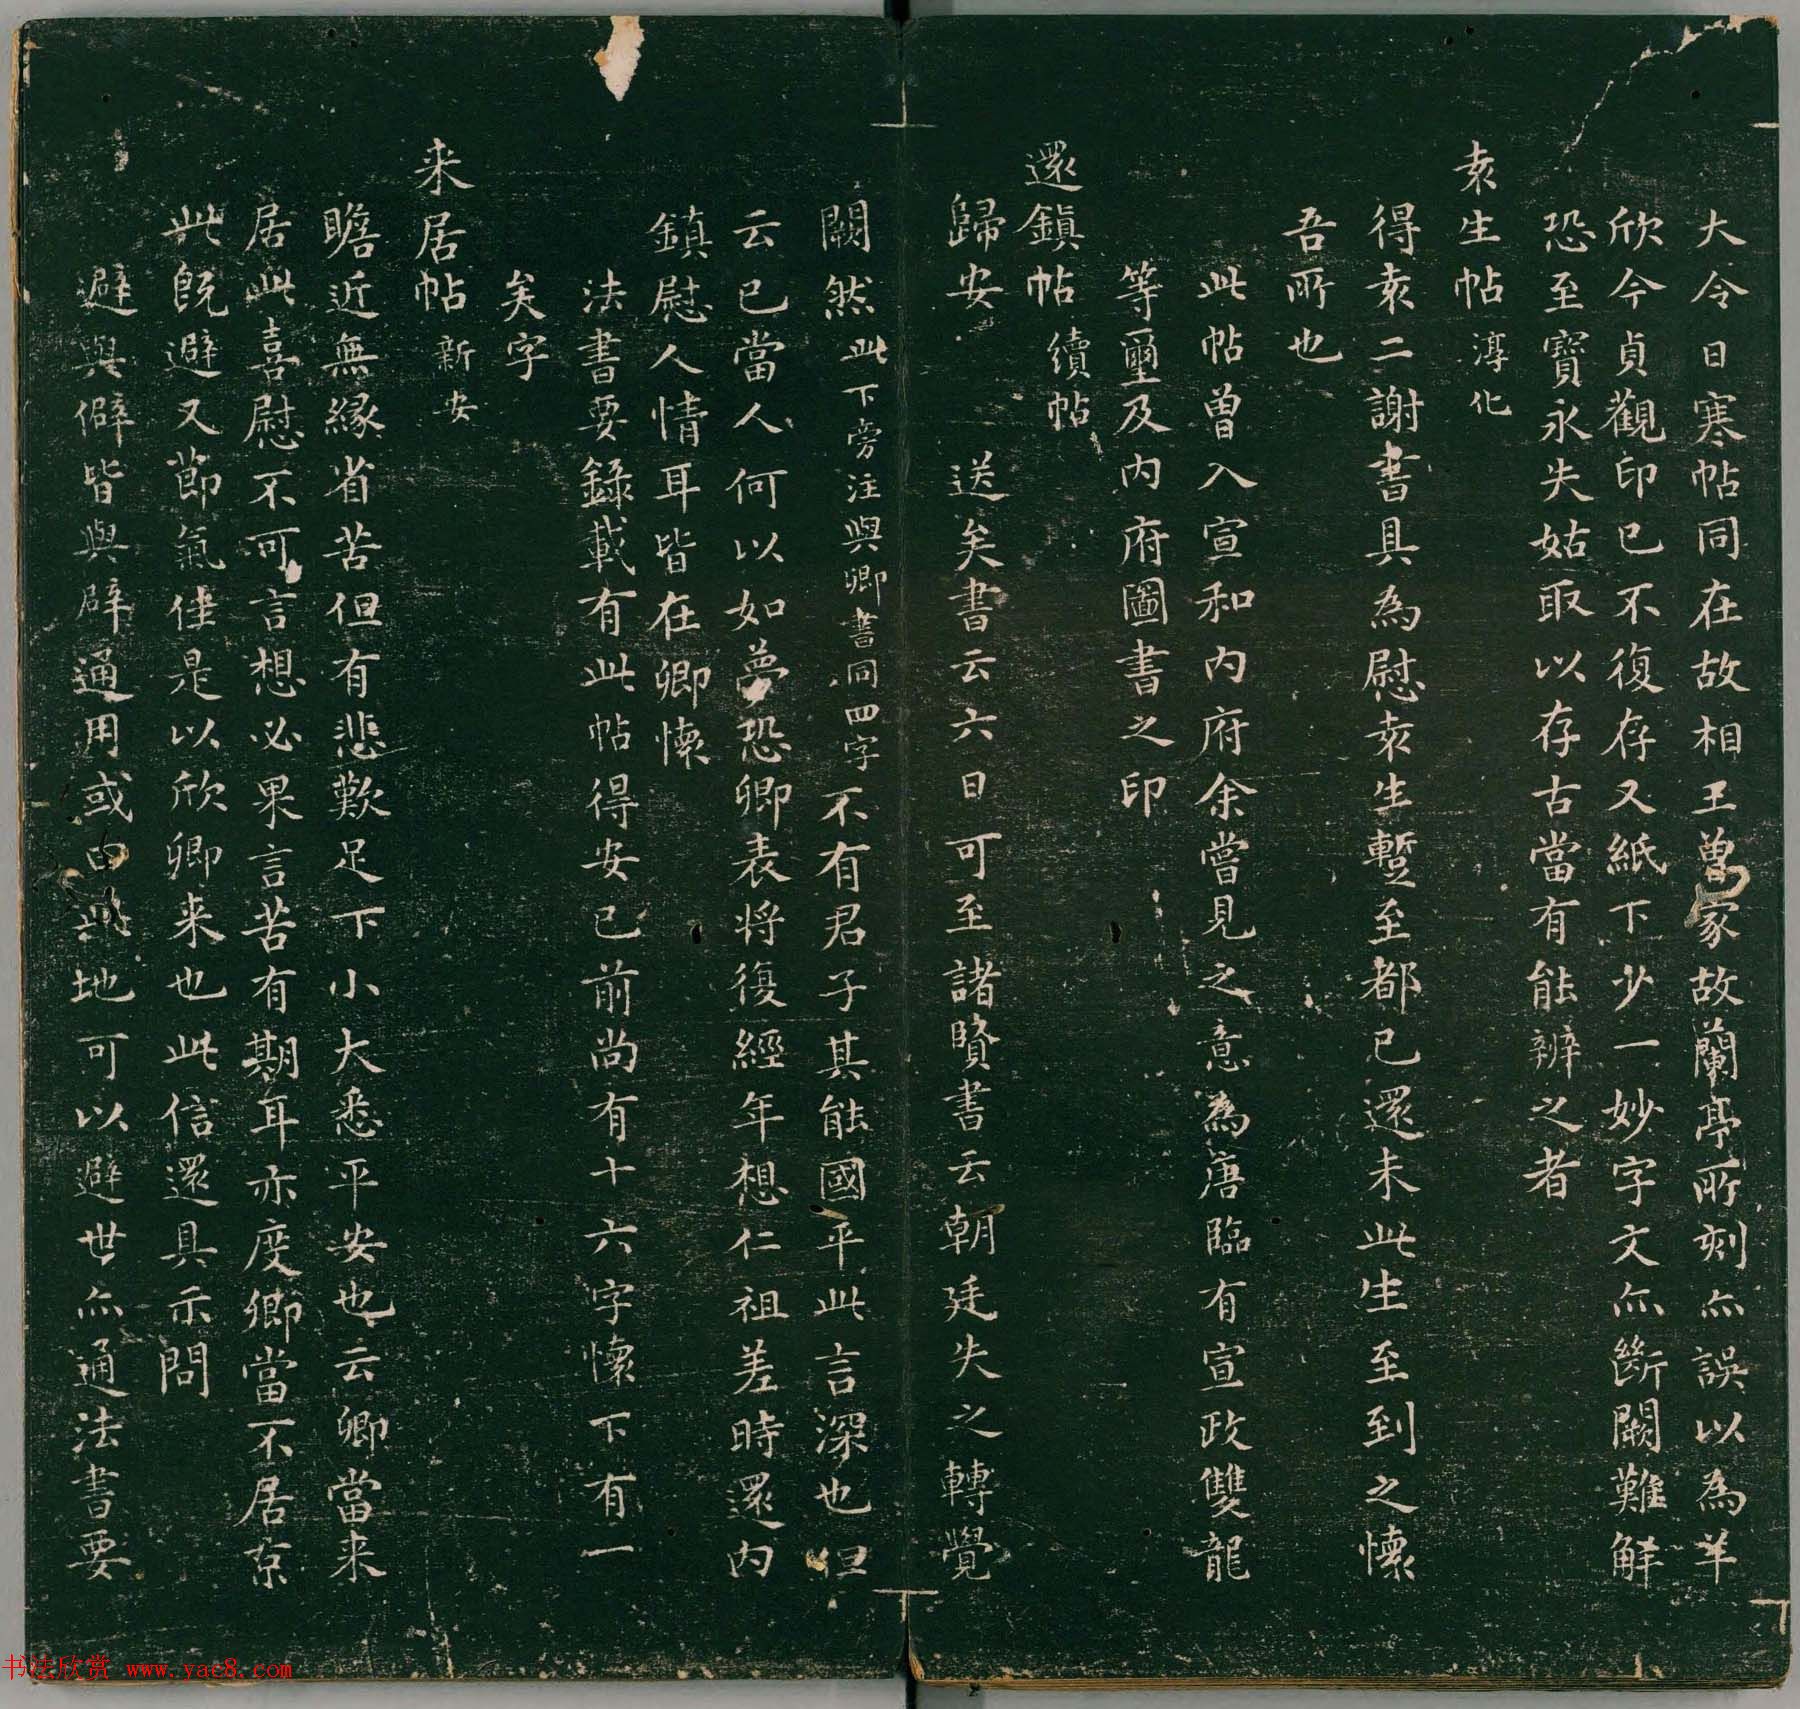 大令日寒帖同在故相王曾家故蘭亭所刻亦誤以為羊
欣今貞觀印已不復存又紙下少一妙字文亦斷闕難解
恐至寶永失姑取以存古當有能辨之者
袁生帖 淳化
得袁二謝書具為慰袁生暫至都已還未此生至到之懷
吾所也
此帖曾入宣和內府余嘗見之意為唐臨有宣政雙龍
等璽及內府圖書之印
還鎮帖 續帖
歸安 送矣書云六日可至諸賢書云朝廷失之轉覺
闕然此下旁注與卿書同四字不有君子其能國乎此言深也但
云已當人何以如夢恐卿表將復經年想仁祖差時還內
鎮慰人情耳皆在卿懷
法書要錄載有此帖得安已前尚有十六字懷下有一
矣字
来居帖 新安
瞻近無緣省苦但有悲歎足下小大悉平安也云卿當来
居此喜慰不可言想必果言苦有期耳亦度卿當不居京
此既避又節氣佳是以欣卿来也此信還具示問
避與僻皆與辟通用或曰此地可以避世亦通法書要
书法欣赏 www.yac8.com